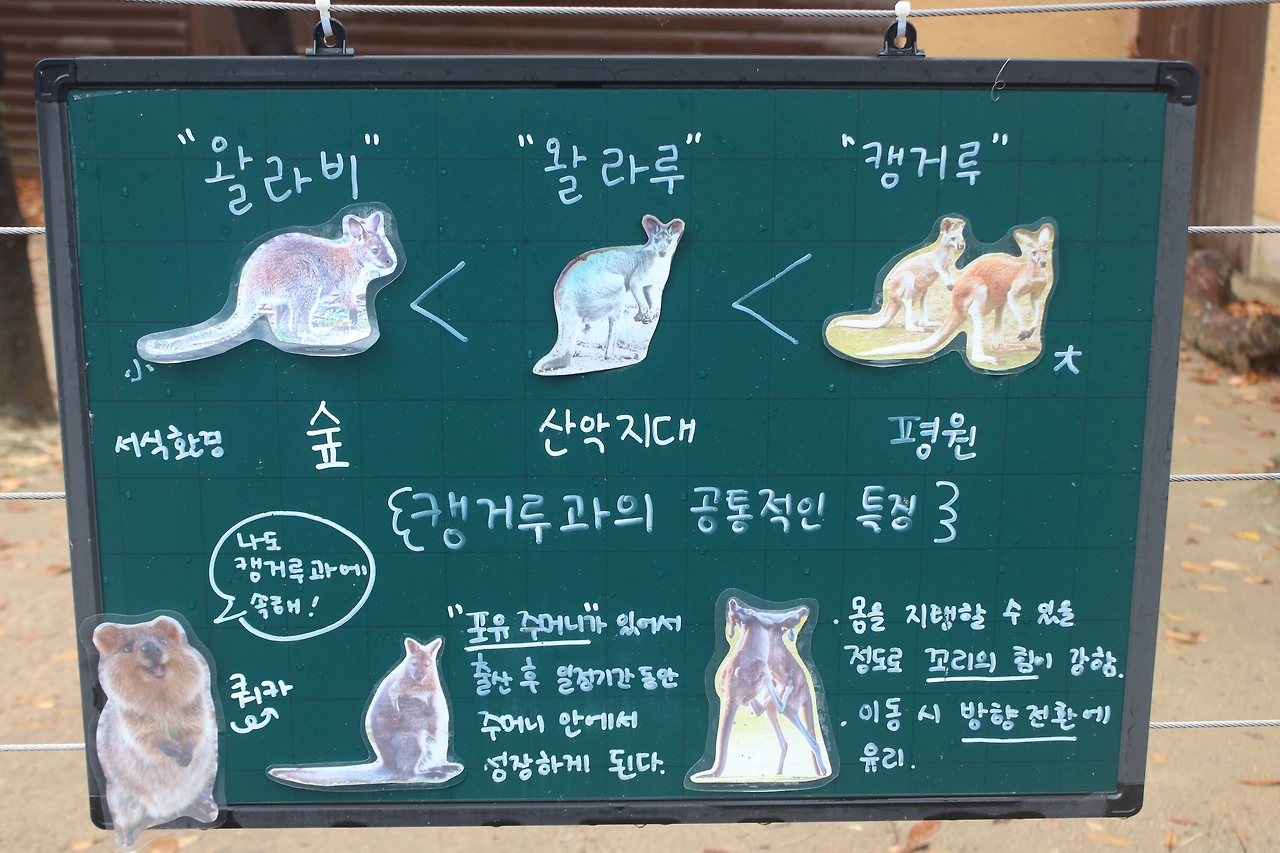 "왈라비" "왈라루" "캥거루"
< <
小 大
서식환경 숲 산악지대 평원
{캥거루과의 공통적인 특징}
나도
캥거루과에
속해!
쿼카
"포유 주머니"가 있어서
출산 후 일정기간 동안
주머니 안에서
성장하게 된다.
· 몸을 지탱할 수 있을
정도로 꼬리의 힘이 강함.
· 이동 시 방향 전환에
유리.